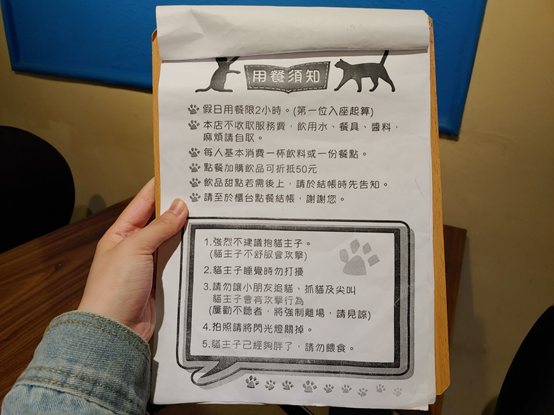 用餐須知
假日用餐限2小時。(第一位入座起算)
本店不收取服務費，飲用水、餐具、醬料，
麻煩請自取。
每人基本消費一杯飲料或一份餐點。
點餐加購飲品可折抵50元
飲品甜點若需後上，請於結帳時先告知。
請至於櫃台點餐結帳，謝謝您。
1.強烈不建議抱貓主子。
(貓主子不舒服會攻擊)
2.貓主子睡覺時勿打擾
3.請勿讓小朋友追貓，抓貓及尖叫
貓主子會有攻擊行為
(屢勸不聽者，將強制離場，請見諒)
4.拍照請將閃光燈關掉。
5.貓主子已經夠胖了，請勿餵食。